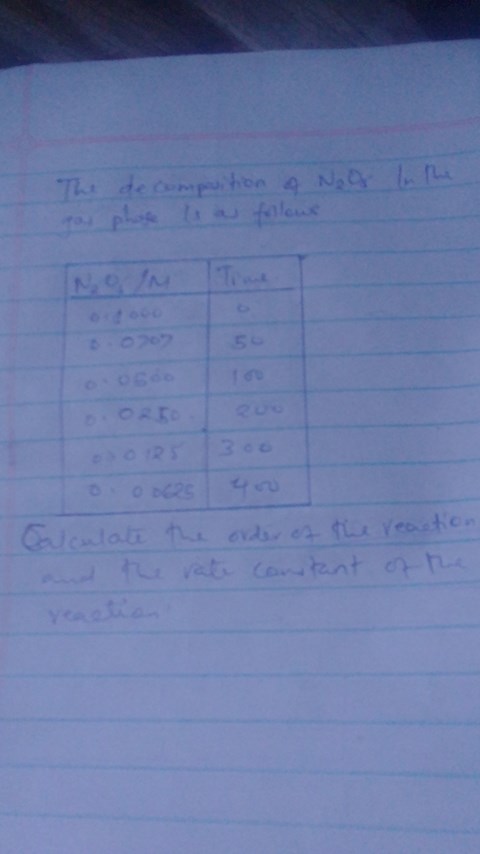 The decomposition of N2O5 In the
gas phase is as follows
N2O5 /M Time
0.1000 0
0.0707 50
0.0500 100
0.0250 200
0.0125 300
0.00625 400
Calculate the order of the reaction
and the rate constant of the
reaction.